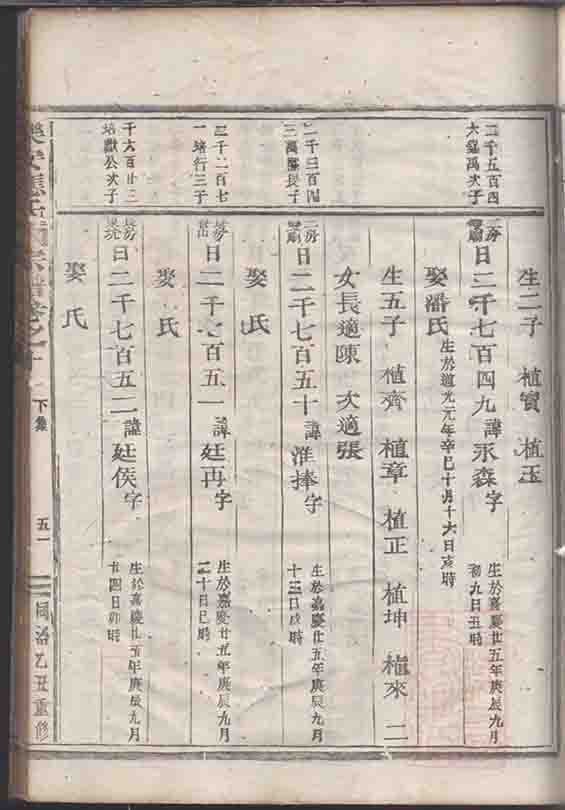 生二子 植寶 植玉
二千五百四
大鎰禹次子
三房
曰二千七百四九諱永森字
生於嘉慶廿五年庚辰九月
初九日丑時
娶潘氏 生於道光元年辛巳十月十六日戌時
生五子 植齊 植章 植正 植坤 植來 二
女長適陳 次適張
二千三百四
三萬 長子
三房
曰二千七百五十諱淮捧字
生於嘉慶廿五年庚辰九月
十三日戌時
娶氏
二千二百七
一培行三子
長房
曰二千七百五一諱廷再字
生於嘉慶廿五年庚辰九月
二十日巳時
娶氏
千六百廿三
培獻公次子
長房
曰二千七百五二諱廷侯字
生於嘉慶廿五年庚辰九月
廿四日卯時
娶氏
宗譜卷之
下集
五一
同治乙丑重修